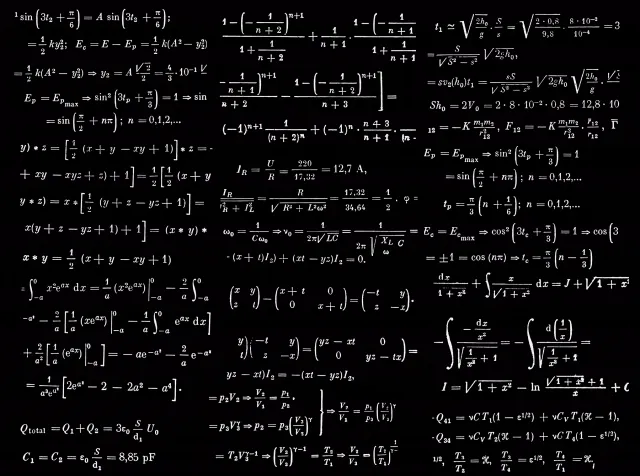 ¹ sin (3t₂ + π/6) = A sin (3t₂ + π/6);
= 1/2 ky₂²; E_c = E − E_p = 1/2 k(A² − y₂²)
= 1/2 k(A² − y₂²) ⇒ y₂ = A √2/2 = 4/3 · 10⁻¹ √
E_p = E_pmax ⇒ sin² (3t_p + π/3) = 1 ⇒ sin
= sin (π/2 + nπ); n = 0,1,2,...
y) * z = [1/2 (x + y − xy + 1)] * z =
+ xy − xyz + z) + 1] = 1/2 [1/2 (x + y
y * z) = x * [1/2 (y + z − yz + 1)] =
x(y + z − yz + 1) + 1] = (x * y) *
x * y = 1/2 (x + y − xy + 1)
= ∫₋ₐ⁰ x²eᵃˣ dx = 1/a (x²eᵃˣ)|₋ₐ⁰ − 2/a ∫₋ₐ⁰
−a² − 2/a [1/a (xeᵃˣ)|₋ₐ⁰ − 1/a ∫₋ₐ⁰ eᵃˣ dx]
+ 2/a² [1/a (eᵃˣ)|₋ₐ⁰] = −ae⁻ᵃ² − 2/a e⁻ᵃ²
[2eᵃ² − 2 − 2a² − a⁴].
Q_total = Q₁ + Q₂ = 3ε₀ S/d₁ U₀
C₁ = C₂ = ε₀ S/d₁ = 8,85 pF
1 − (− 1/(n + 2))ⁿ⁺¹ / (1 + 1/(n + 1)) + 1/(n + 1) · 1 − (− 1/(n + 1)) / (1 + 1/(n + 1))
− 1/(n + 1))ⁿ⁺¹ / (n + 2) − 1 − (− 1/(n + 1))ⁿ⁺¹ / (n + 3) ] =
(−1)ⁿ⁺¹ 1/(n + 2)ⁿ + (−1)ⁿ · (n + 3)/(n + 1) ·
I_R = U/R = 220/17,32 = 12,7 A,
I_R/√(I_R² + I_L²) = R/√(R² + L²ω²) = 17,32/34,64 = 1/2 · φ =
ω₀ = 1/√(Cω₀) ⇒ ν₀ = 1/(2π√LC) = 1/(2π √(X_L C/ω))
· (x + t)I₂) + (xt − yz)I₂ = 0.
(x y / z t) − (x + t 0 / 0 x + t) = (−t y / z −x).
y / t)(−t y / z −x) = (yz − xt 0 / 0 yz − tx) =
yz − xt)I₂ = −(xt − yz)I₂,
= p₂V₂ ⇒ V₂/V₃ = p₁/p₂ ·
= p₃V₃ᵞ ⇒ p₂ = p₃ (V₃/V₂)ᵞ } ⇒ V₂/V₁ = p₁/p₃ (V₂/V₃)ᵞ
= T₂V₃ᵞ⁻¹ ⇒ (V₃/V₂)ᵞ⁻¹ = T₂/T₃ ⇒ V₂/V₃ = (T₃/T₁)
t₁ ≃ √(2h₀/g) · S/s = √(2 · 0,8/9,8) · 8 · 10⁻²/10⁻⁴ = 3
= S/√(S² − s²) √2gh₀,
= sv₂(h₀)t₁ = sS/√(S² − s²) √2gh₀ √(2h₀/g) ·
Sh₀ = 2V₀ = 2 · 8 · 10⁻² · 0,8 = 12,8 · 10
₁₂ = −K m₁m₂/r₁₂², F₁₂ = −K m₁m₂/r₁₂² · r₁₂/r₁₂,
E_p = E_pmax ⇒ sin² (3t_p + π/3) = 1
= sin (π/2 + nπ); n = 0,1,2,...
t_p = π/3 (n + 1/6); n = 0,1,2,...
E_c = E_cmax ⇒ cos² (3t_c + π/3) = 1 ⇒ cos (3
= ±1 = cos (nπ) ⇒ t_c = π/3 (n − 1/3)
dx/√(1 + x²) + ∫ x/√(1 + x²) dx = J + √(1 + x²
− ∫ (− dx/x²)/√(1/x² + 1) = − ∫ d(1/x)/√(1/x² + 1) =
I = √(1 + x²) − ln (√(1 + x²) + 1)/x + C
· Q₄₁ = νCT₁(1 − ε¹ᐟ²) + νC_VT₁(𝒦 − 1),
· Q₃₄ = νC_VT₂(𝒦 − 1) + νCT₄(1 − ε¹ᐟ²),
¹ᐟ², T₃/T₂ = 𝒦, T₂/T₁ = ε¹ᐟ², T₄/T₁ = 𝒦,